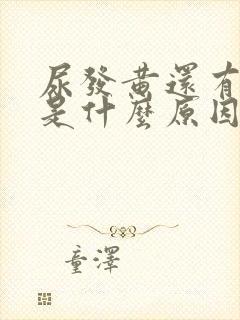 尿發黃還有
是什麼原因
童澤